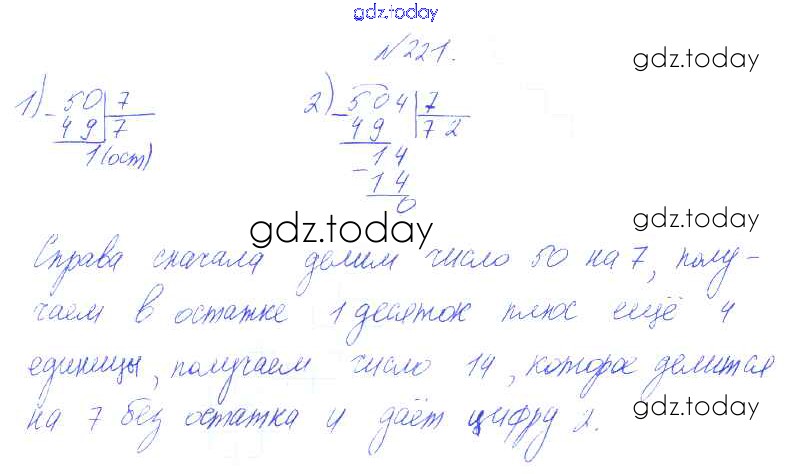 gdz.today
№221. gdz.today
1) 50 7 2) 504 7
- 49 7 - 49 72
1(ост) 14
- 14
0
gdz.today gdz.today
Справа сначала делим число 50 на 7, полу-
чаем в остатке 1 десяток плюс ещё 4
единицы, получаем число 14, которое делится
на 7 без остатка и даёт цифру 2.
gdz.today